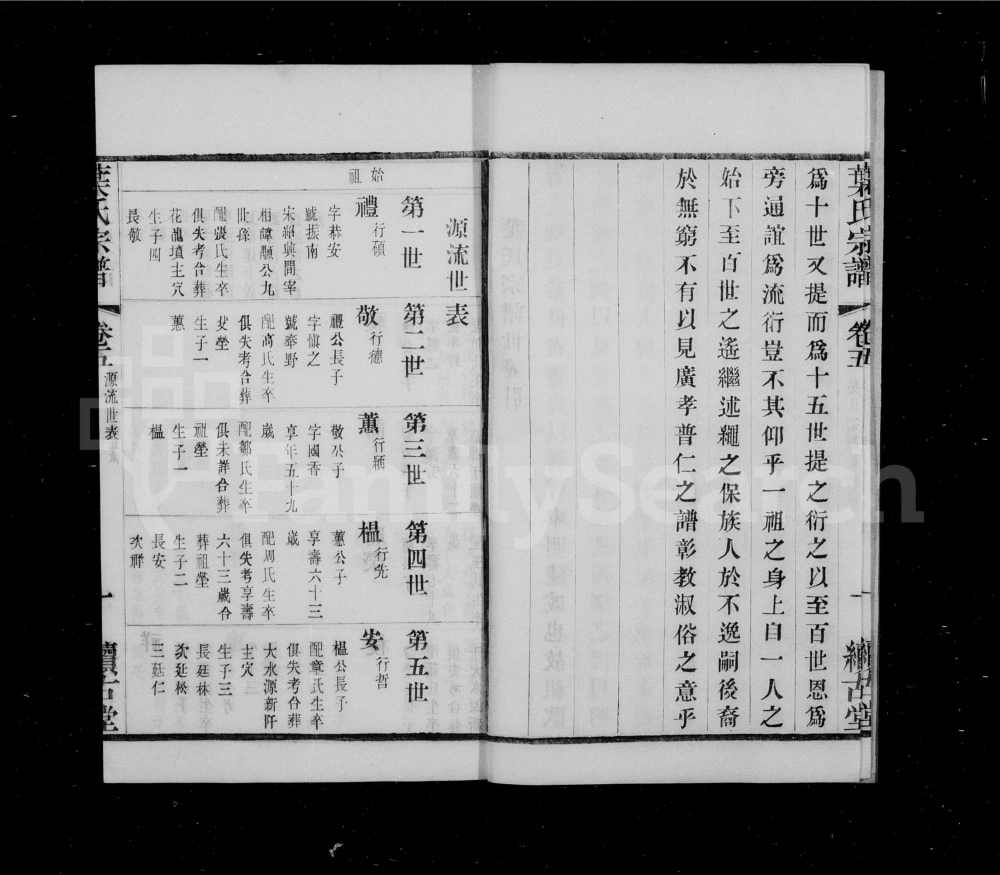 葉氏宗譜
卷五
一
續古堂
爲十世又提而爲十五世提之衍之以至百世恩爲
旁通誼爲流衍豈不其仰乎一祖之身上自一人之
始下至百世之遙繼述繩之保族人於不逸嗣後裔
於無窮不有以見廣孝普仁之譜彰教淑俗之意乎
源流世表
始祖
第一世
禮行碩
字恭安
號振南
宋紹興間宰
相諱顒公九
世孫
配張氏生卒
俱失考合葬
花龍墳主穴
生子四
長敬
第二世
敬行德
禮公長子
字愼之
號奉野
配高氏生卒
俱失考合葬
父塋
生子一
蕙
第三世
蕙行輛
敬公子
字國香
享年五十九
歲
配鄒氏生卒
俱未詳合葬
祖塋
生子一
榅
第四世
榅行先
蕙公子
享壽六十三
歲
配周氏生卒
俱失考享壽
六十三歲合
葬祖塋
生子二
長安
次祥
第五世
安行哲
榅公長子
配章氏生卒
俱失考合葬
大水源新阡
主穴
生子三
長廷林
次廷松
三廷仁
葉氏宗譜
卷五
源流世表
一
續古堂
FamilySearch